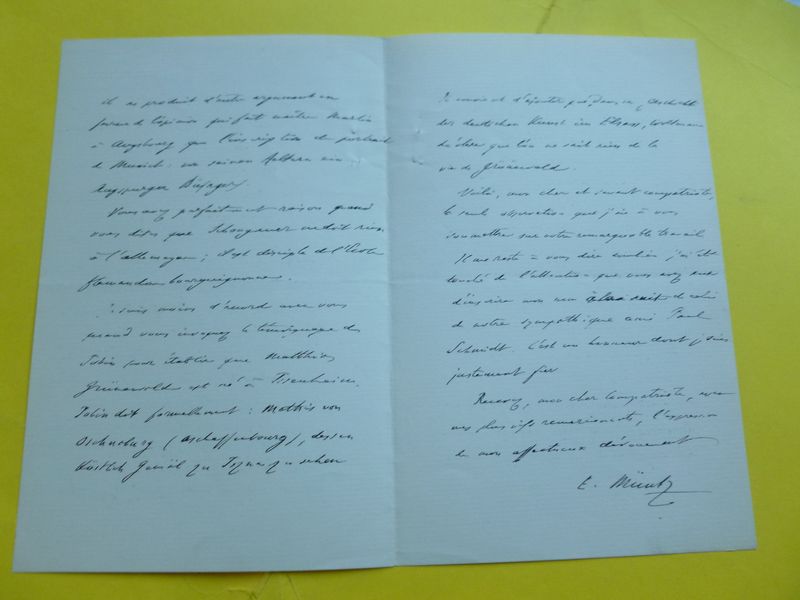 il se produit d'autre argument en
faveur de l'opinion qui fait naître Martin
à Augsbourg que l'inscription du portrait
de Munich: von seinen Aeltern ein
Augspurger Burger.
Vous avez parfaitement raison quand
vous dites que Schongauer ne doit rien
à l'allemagne; il est disciple de l'Ecole
flamando bourguignonne.
Je suis moins d'accord avec vous
quand vous invoquez le témoignage de
Jobin pour établir que Matthias
Grünewald est né à Isenheim.
Jobin dit formellement: Mathis von
Oschnaburg (Aschaffenbourg), dessen
köstlich Gemäl zu Isna zu sehen
Je crois d'ajouter que dans sa Geschichte
der deutschen Kunst im Elsass, Woltmann
déclare que l'on ne sait rien de la
vie de Grünewald.
Voilà, mon cher et savant compatriote,
la seule observation que j'aie à vous
soumettre sur votre remarquable travail
Il me reste à vous dire combien j'ai été
touché de l'attention que vous avez eue
d'inscrire mon nom à la suite de celui
de notre sympathique ami Paul
Schmidt. C'est un honneur dont je suis
justement fier
Recevez, mon cher Compatriote, avec
mes plus vifs remerciements, l'expression
de mon affectueux dévouement
E. Müntz